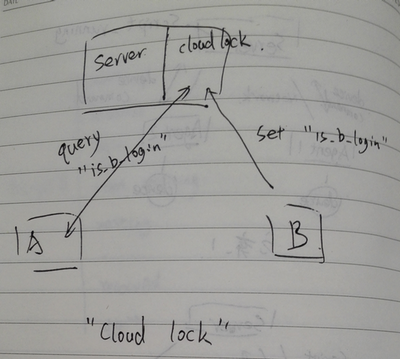 server
cloud lock.
query
"is_b_login"
set "is_b_login"
A
B
"Cloud lock"